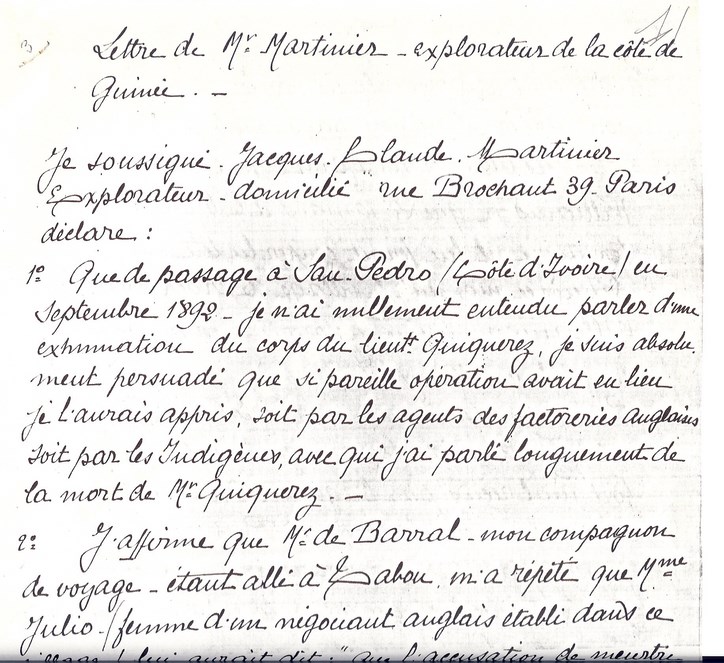 Lettre de Mr Martinier - explorateur de la côte de
Guinée . -
Je soussigné . Jacques . Claude . Martinier
Explorateur - domicilié rue Brochant 39 - Paris
déclare :
1º Que de passage à San Pedro / Côte d'Ivoire / en
Septembre 1892 - je n'ai nullement entendu parler d'une
exhumation du corps du lieutt Quiquerez, je suis absolu-
ment persuadé que si pareille opération avait eu lieu
je l'aurais appris, soit par les agents des factoreries anglaises
soit par les Indigènes, avec qui j'ai parlé longuement de
la mort de Mr Quiquerez . -
2º J'affirme que Mr de Barral - mon compagnon
de voyage - étant allé à Tabou, m'a répété que Mme
Julio - / femme d'un négociant anglais établi dans ce
village / lui aurait dit : " que l'accusation de meurtre